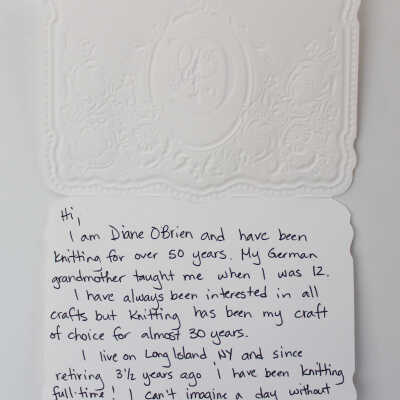 Hi,
I am Diane O'Brien and have been
knitting for over 50 years. My German
grandmother taught me when I was 12.
I have always been interested in all
crafts but knitting has been my craft
of choice for almost 30 years.
I live on Long Island, NY and since
retiring 3½ years ago I have been knitting
full-time! I can't imagine a day without